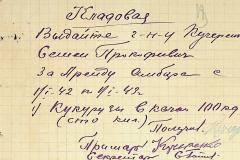 Кладовая
Выдайте г-ну Кучеренко
Семен Прокофьевич
За Аренду Амбара с
1/I-42 по 1/I-43г.
Кукурузы в колич 100 кг
(сто кил.)
Получил
Примарь Кучеренко
Секретарь